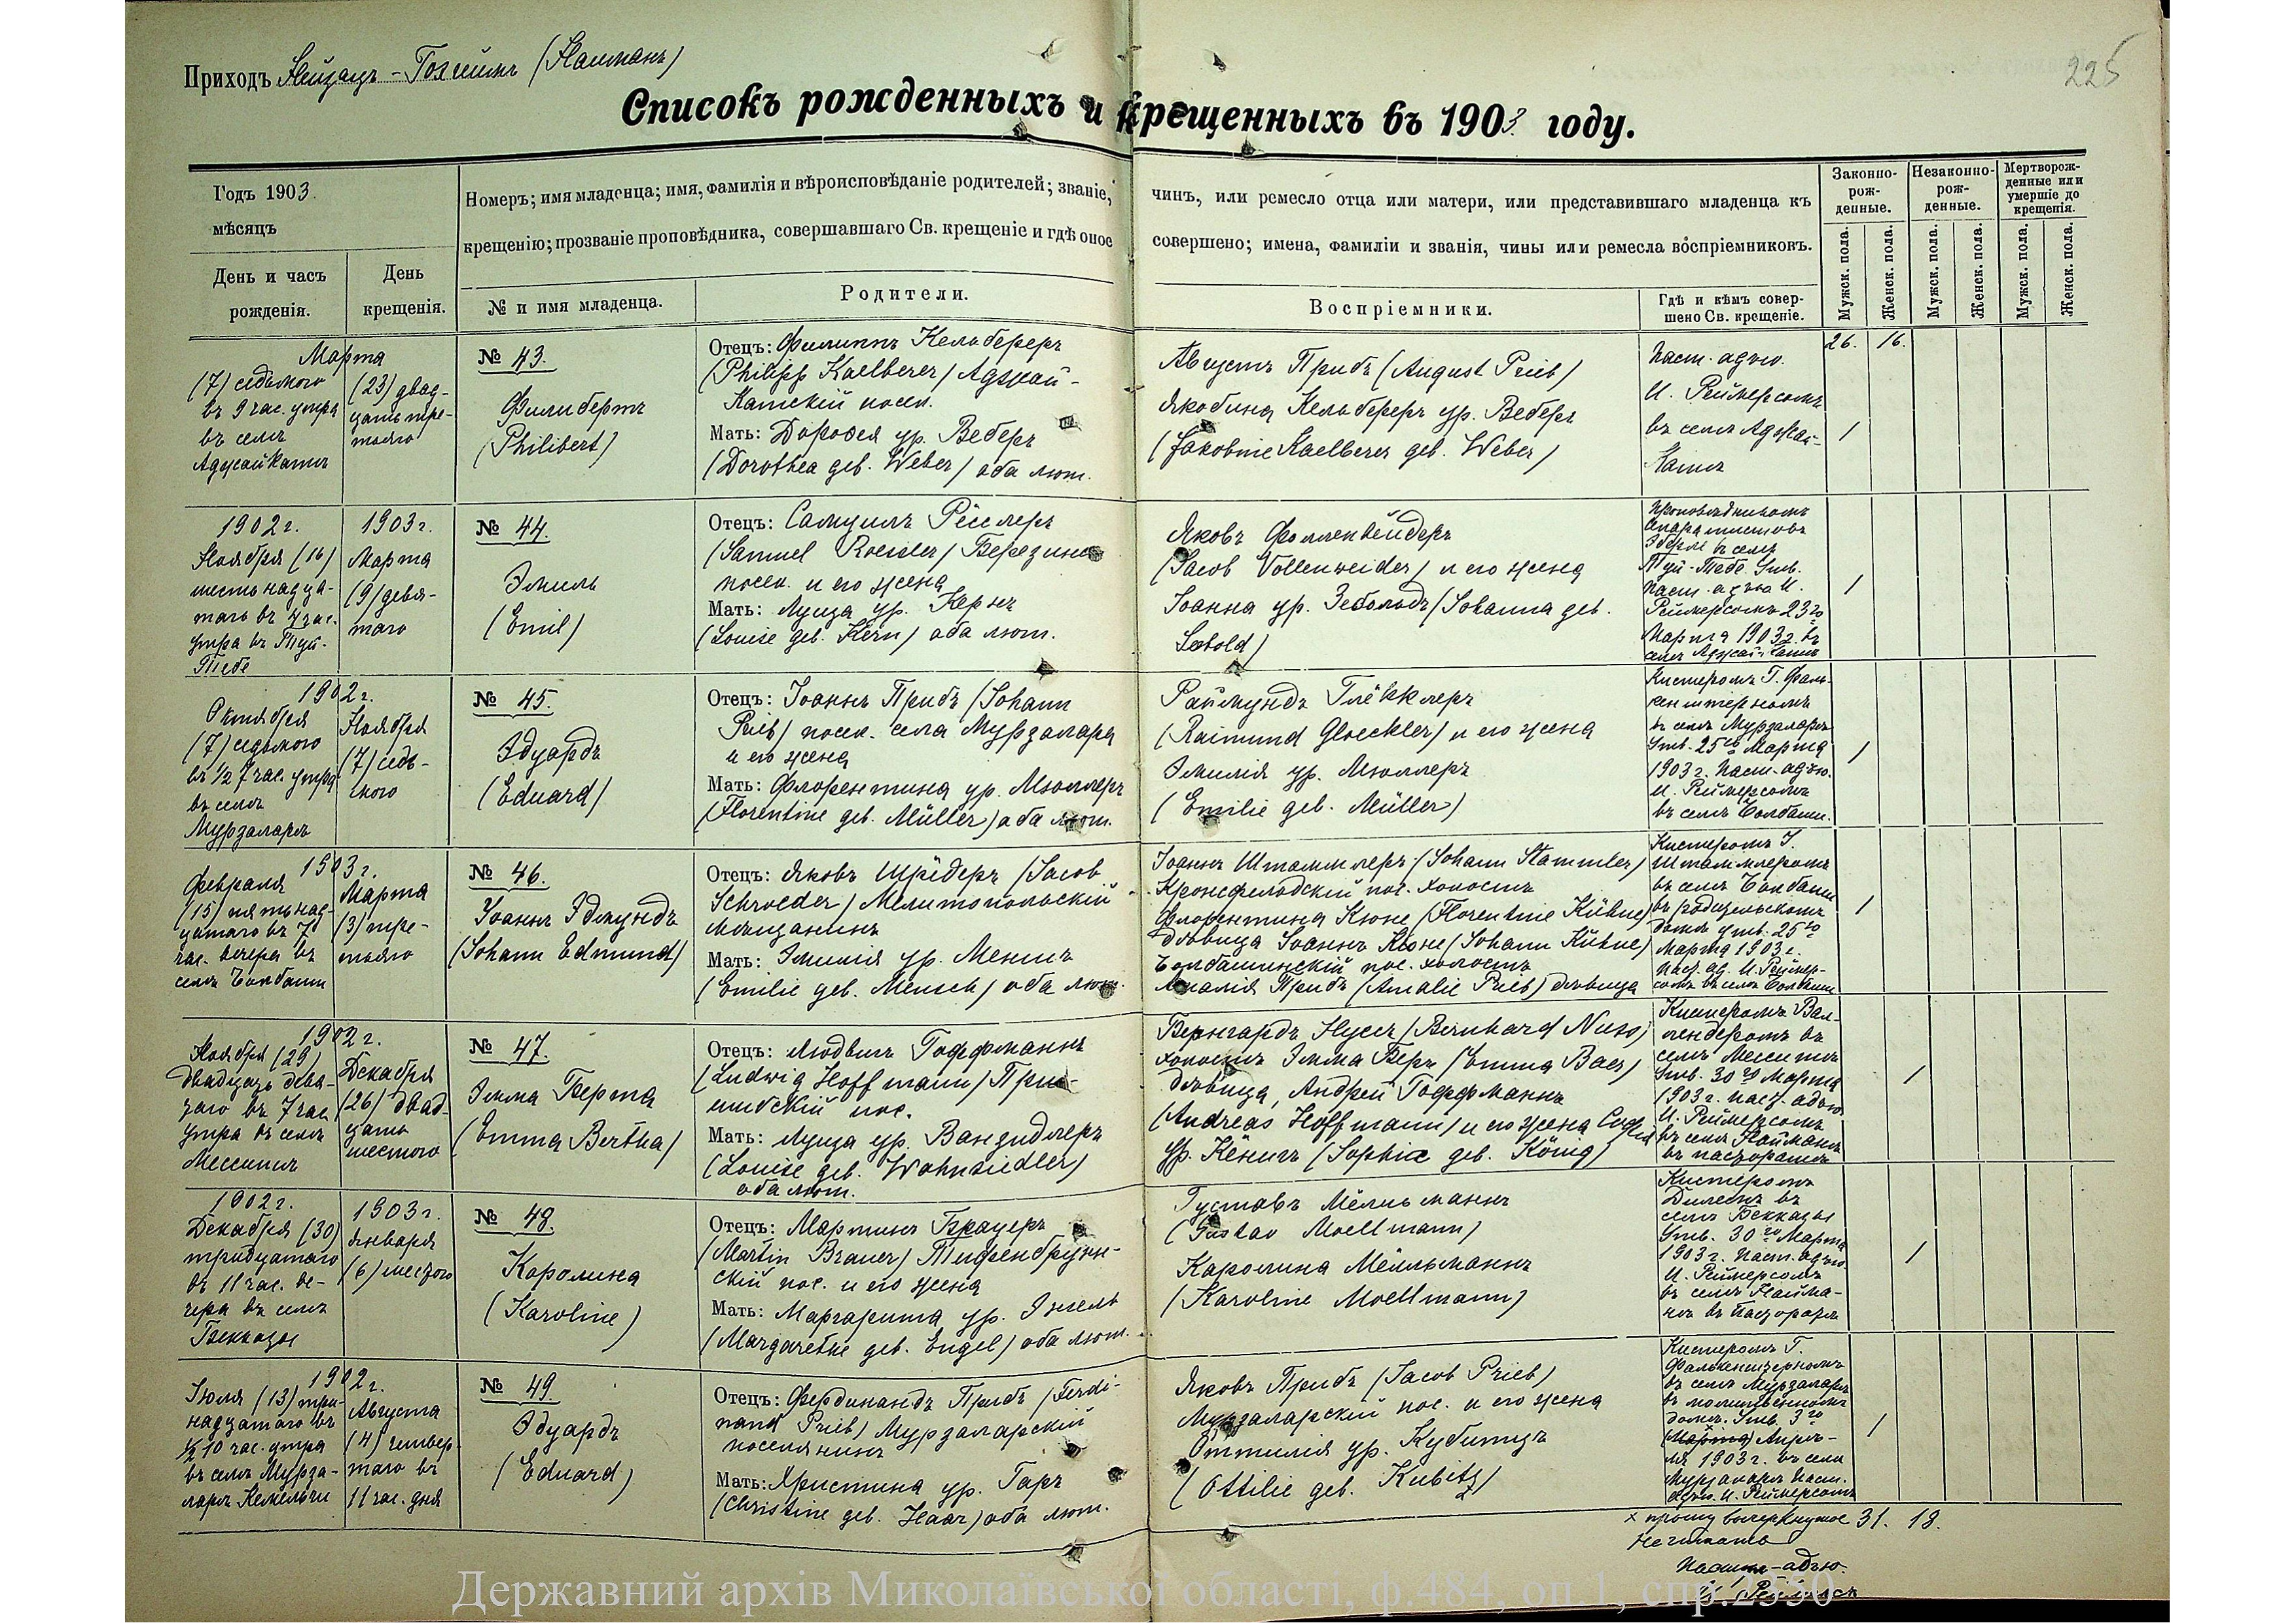 Приходъ Нейзацъ - Гохгеймъ (Найманъ)
225
Списокъ рожденныхъ и крещенныхъ въ 1903 году.
Годъ 1903
мѣсяцъ
День и часъ
рожденія.
День
крещенія.
Номеръ; имя младенца; имя, фамилія и вѣроисповѣданіе родителей; званіе,
крещенію; прозваніе проповѣдника, совершавшаго Св. крещеніе и гдѣ оное
№ и имя младенца.
Родители.
чинъ, или ремесло отца или матери, или представившаго младенца къ
совершено; имена, фамиліи и званія, чины или ремесла воспріемниковъ.
Воспріемники.
Гдѣ и кѣмъ совер-
шено Св. крещеніе.
Законно-
рож-
денные.
Незаконно-
рож-
денные.
Мертворож-
денные или
умершіе до
крещенія.
Мужск. пола.
Женск. пола.
Мужск. пола.
Женск. пола.
Мужск. пола.
Женск. пола.
26. 16.
Марта
(7) седьмого
въ 9 час. утра
въ селѣ
Аджай Катъ
(23) двад-
цать тре-
тьяго
№ 43.
Филибертъ
(Philibert)
Отецъ: Филиппъ Кельбереръ
(Philipp Kaelberer) Аджай-
Катскій посел.
Мать: Доротея ур. Веберъ
(Dorothea geb. Weber) оба лют.
Августъ Прибъ (August Prieb)
Якобина Кельбереръ ур. Веберъ
(Jakobine Kaelberer geb. Weber)
Паст. адъю.
И. Реймерсомъ
въ селѣ Аджай-
Катъ
1
1902 г.
Ноября (16)
шестьнадца-
таго въ 7 час.
утра въ Туй-
Тебе
1903 г.
Марта
(9) девя-
таго
№ 44.
Эмиль
(Emil)
Отецъ: Самуилъ Рёслеръ
(Samuel Roesler) Березинс
посел. и его жена
Мать: Луиза ур. Кернъ
(Louise geb. Kern) оба лют.
Яковъ Фолленвейдеръ
(Jacob Vollenweider) и его жена
Іоанна ур. Зебольдъ (Johanna geb.
Sebold)
Проповѣдникомъ
Сепаратистовъ
въ селѣ
Туй-Тебе. Утв.
паст. адъю. И.
Реймерсомъ 23го
Марта 1903 г. въ
селѣ Аджай Катъ
1
1902 г.
Октября
(7) седьмого
въ 1/2 7 час. утра
въ селѣ
Мурзаларъ
Ноября
(7) седь-
мого
№ 45.
Эдуардъ
(Eduard)
Отецъ: Іоаннъ Прибъ (Johann
Prieb) посел. села Мурзалара
и его жена
Мать: Флорентина ур. Мюллеръ
(Florentine geb. Müller) оба лют.
Раймундъ Глёкклеръ
(Raimund Gloeckler) и его жена
Эмилія ур. Мюллеръ
(Emilie geb. Müller)
Кистеромъ Г. Фаль-
кенштерномъ
въ селѣ Мурзаларъ
Утв. 25го Марта
1903 г. Паст. адъю.
И. Реймерсомъ
въ селѣ Болбаши.
1
1903 г.
Февраля
(15) пятьнад-
цатаго въ 7
час. вечера въ
селѣ Болбаши
Марта
(3) тре-
тьяго
№ 46.
Іоаннъ Эдмундъ
(Johann Edmund)
Отецъ: Яковъ Шрёдеръ (Jacob
Schroeder) Мелитопольскій
мѣщанинъ
Мать: Эмилія ур. Меншъ
(Emilie geb. Mensch) оба лют.
Іоаннъ Штаммлеръ (Johann Stammler)
Кронсфельдскій пос. холостъ
Флорентина Кюне (Florentine Kühne)
дѣвица Іоаннъ Кюне (Johann Kühne)
Болбашинскій пос. холостъ
Амалія Прибъ (Amalie Prieb) дѣвица
Кистеромъ І.
Штаммлеромъ
въ селѣ Болбаши
въ родительскомъ
домѣ утв. 25го
Марта 1903 г.
Паст. ад. И. Реймер-
сомъ въ селѣ Болбаши
1
1902 г.
Ноября (29)
двадцать девя-
таго въ 7 час.
утра въ селѣ
Месситъ
Декабря
(26) двад-
цать
шестого
№ 47.
Эмма Берта
(Emma Bertha)
Отецъ: Людвигъ Гоффманнъ
(Ludwig Hoffmann) При-
шибскій пос.
Мать: Луиза ур. Ванзидлеръ
(Louise geb. Wahnsiedler)
оба лют.
Бернгардъ Нуссъ (Bernhard Nuss)
холостъ Эмма Беръ (Emma Baer)
дѣвица, Андрей Гоффманнъ
(Andreas Hoffmann) и его жена Софія
ур. Кёнигъ (Sophia geb. König)
Кистеромъ Вал-
лендеромъ въ
селѣ Месситъ
Утв. 30го Марта
1903 г. Паст. адъю.
И. Реймерсомъ
въ селѣ Найманъ
въ пасторатѣ
1
1902 г.
Декабря (30)
тридцатаго
въ 11 час. ве-
чера въ селѣ
Бекказы
1903 г.
Января
(6) шестого
№ 48.
Каролина
(Karoline)
Отецъ: Мартинъ Брауеръ
(Martin Brauer) Тифенбрунн-
скій пос. и его жена
Мать: Маргарита ур. Энгель
(Margarethe geb. Engel) оба лют.
Густавъ Мёлльманнъ
(Gustav Moellmann)
Каролина Мёлльманнъ
(Karoline Moellmann)
Кистеромъ
въ
селѣ Бекказы
Утв. 30го Марта
1903 г. Паст. адъю.
И. Реймерсомъ
въ селѣ Найма-
нъ въ Пасторатѣ
1
1902 г.
Іюля (13) три-
надцатаго въ
1/2 10 час. утра
въ селѣ Мурза-
ларъ Кемельчи
Августа
(4) четвер-
таго въ
11 час. дня
№ 49
Эдуардъ
(Eduard)
Отецъ: Фердинандъ Прибъ (Ferdi-
nand Prieb) Мурзаларскій
поселянинъ
Мать: Христина ур. Гаръ
(Christine geb. Haar) оба лют.
Яковъ Прибъ (Jacob Prieb)
Мурзаларскій пос. и его жена
Оттилія ур. Кубитцъ
(Ottilie geb. Kubitz)
Кистеромъ Г.
Фалькенштерномъ
въ селѣ Мурзаларъ
въ молитвенномъ
домѣ. Утв. 3го
(Марта) Апрѣ-
ля 1903 г. въ селѣ
Мурзаларъ Паст.
адъю. И. Реймерсомъ
1
х прошу вычеркнутое 31. 18.
не читать
Пастъ-адъю.
И. Реймерсъ
Державний архів Миколаївської області, ф.484, оп.1, спр.2350